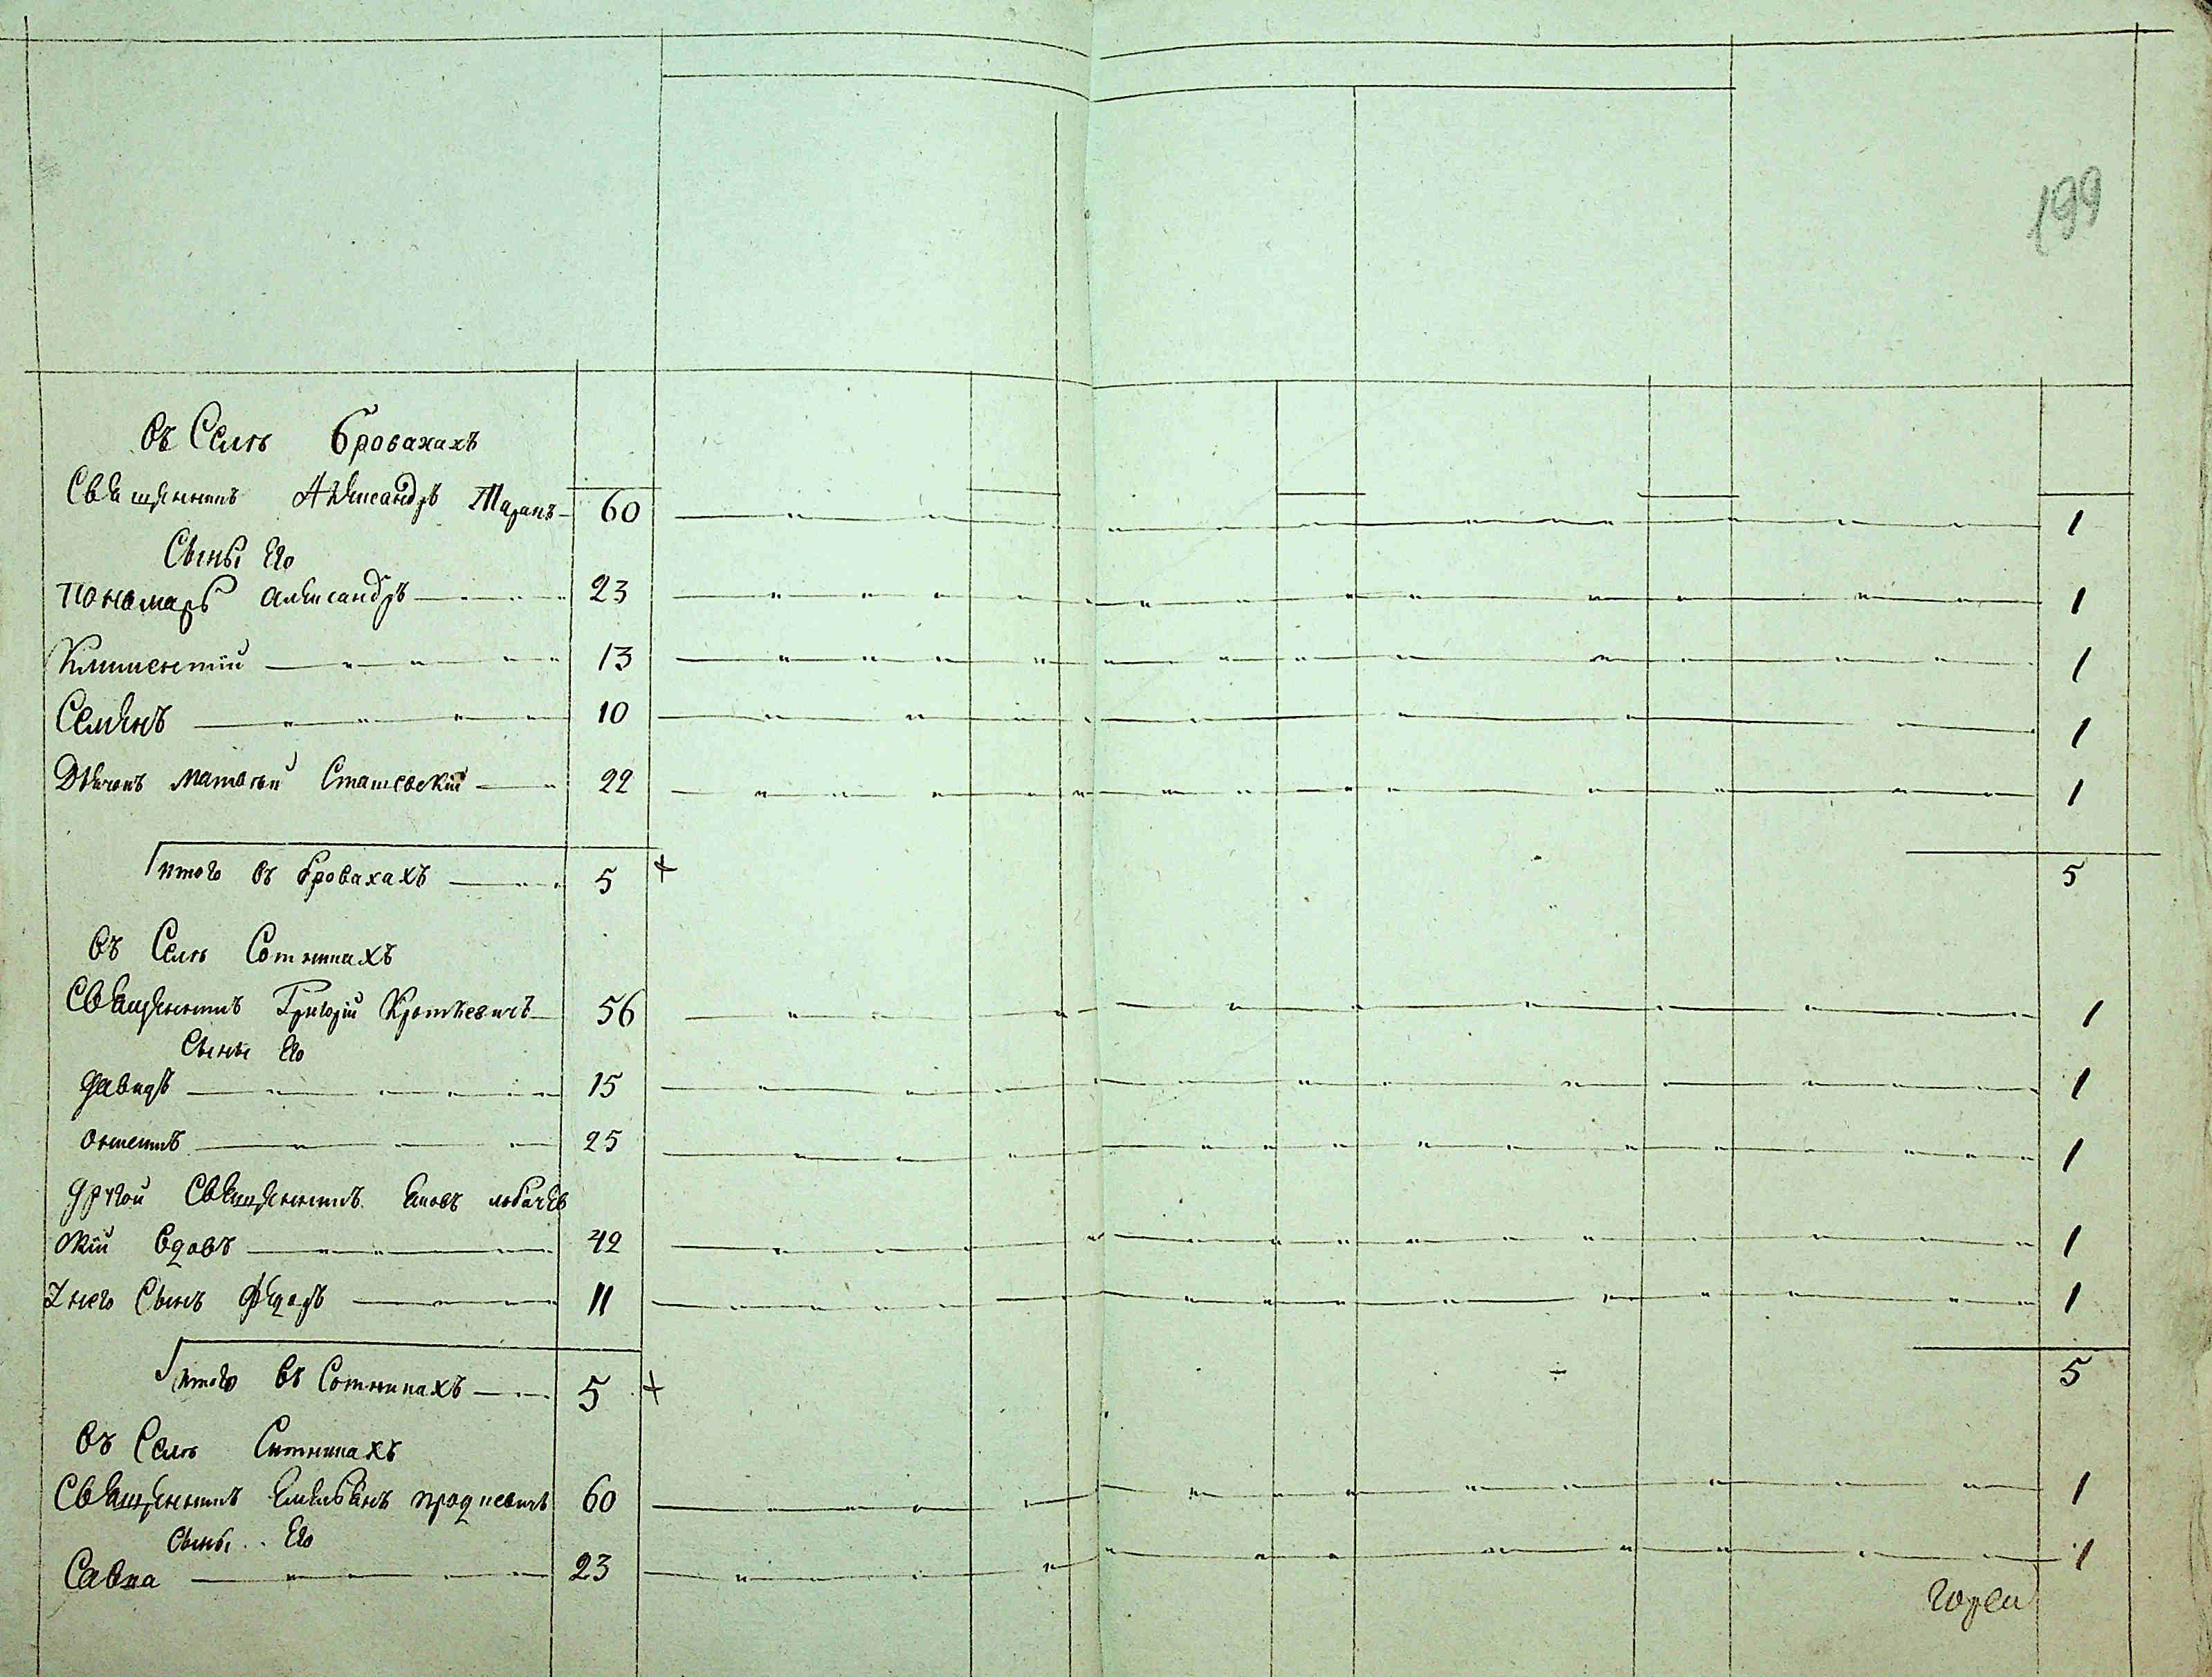 199
Въ Селѣ Бровахахъ
Священникъ Александръ 60 1
Сыны Его
Пономарь александръ 23 1
Климентий 13 1
Семенъ 10 1
Дьячокъ матвѣй Сташевский 22 1
итого въ бровахахъ 5 + 5
Въ Селѣ Сотникахъ
Священникъ Григорий 56 1
Сыны Его
Давидъ 15 1
25 1
Другой Священникъ Яковъ любачев
ский вдовъ 42 1
У него Сынъ Федоръ 11 1
итого въ Сотникахъ 5 + 5
Въ Селѣ Ситникахъ
Священникъ Емельянъ 60 1
Сыны Его
Савка 23 1